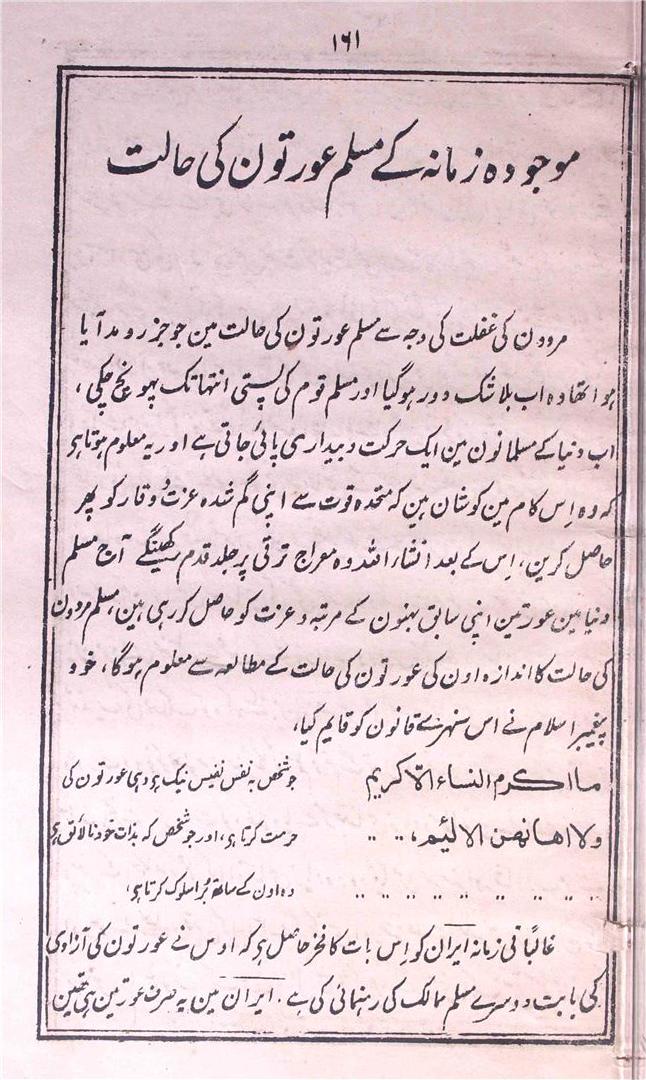 ۱۶۱
موجودہ زمانہ کے مسلم عورتون کی حالت
مردون کی غفلت کی وجہ سے مسلم عورتون کی حالت مین جو جزر و مد آیا
ہوا تھا وہ اب بلا شک دور ہوگیا اور مسلم قوم کی پستی انتہا تک پہونچ چکی ،
اب دنیا کے مسلمانون مین ایک حرکت و بیداری پائی جاتی ہے اور یہ معلوم ہوتا ہی
کہ وہ اِس کام مین کوشان ہین کہ متحدہ قوت سے اپنی گم شدہ عزت و وقار کو پھر
حاصل کرین، اِس کے بعد انشاء اللہ وہ معراج ترقی پر جلد قدم رکھینگے آج مسلم
دنیا مین عورتین اپنی سابق بہنون کے مرتبہ و عزت کو حاصل کر رہی ہین، مسلم مردون
کی حالت کا اندازہ اون کی عورتون کی حالت کے مطالعہ سے معلوم ہوگا، خود
پیغمبر اسلام نے اس سنہرے قانون کو قایم کیا،
ما اکرم النساء الا کریم جو شخص بہ نفس نفیس نیک ہو وہی عورتون کی
ولا اھانھن الا لئیم، .. .. حرمت کرتا ہی، اور جو شخص کہ بذات خود نالائق ہی
.. .. .. .. .. .. .. .. وہ اون کے ساتھ بُرا سلوک کرتا ہی،
غالباً فی زمانہ ایران کو اِس بات کا فخر حاصل ہی کہ اوس نے عورتون کی آزادی
کی بابت دوسرے مسلم ممالک کی رہنمائی کی ہے . ایران مین یہ صرف عورتین ہی تھین